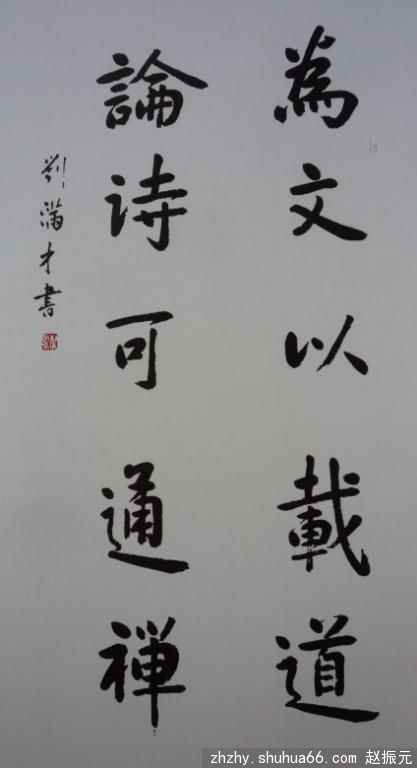 為文以載道
論诗可通禅
刘满才書
zhzhy.shuhua66.com 赵振元